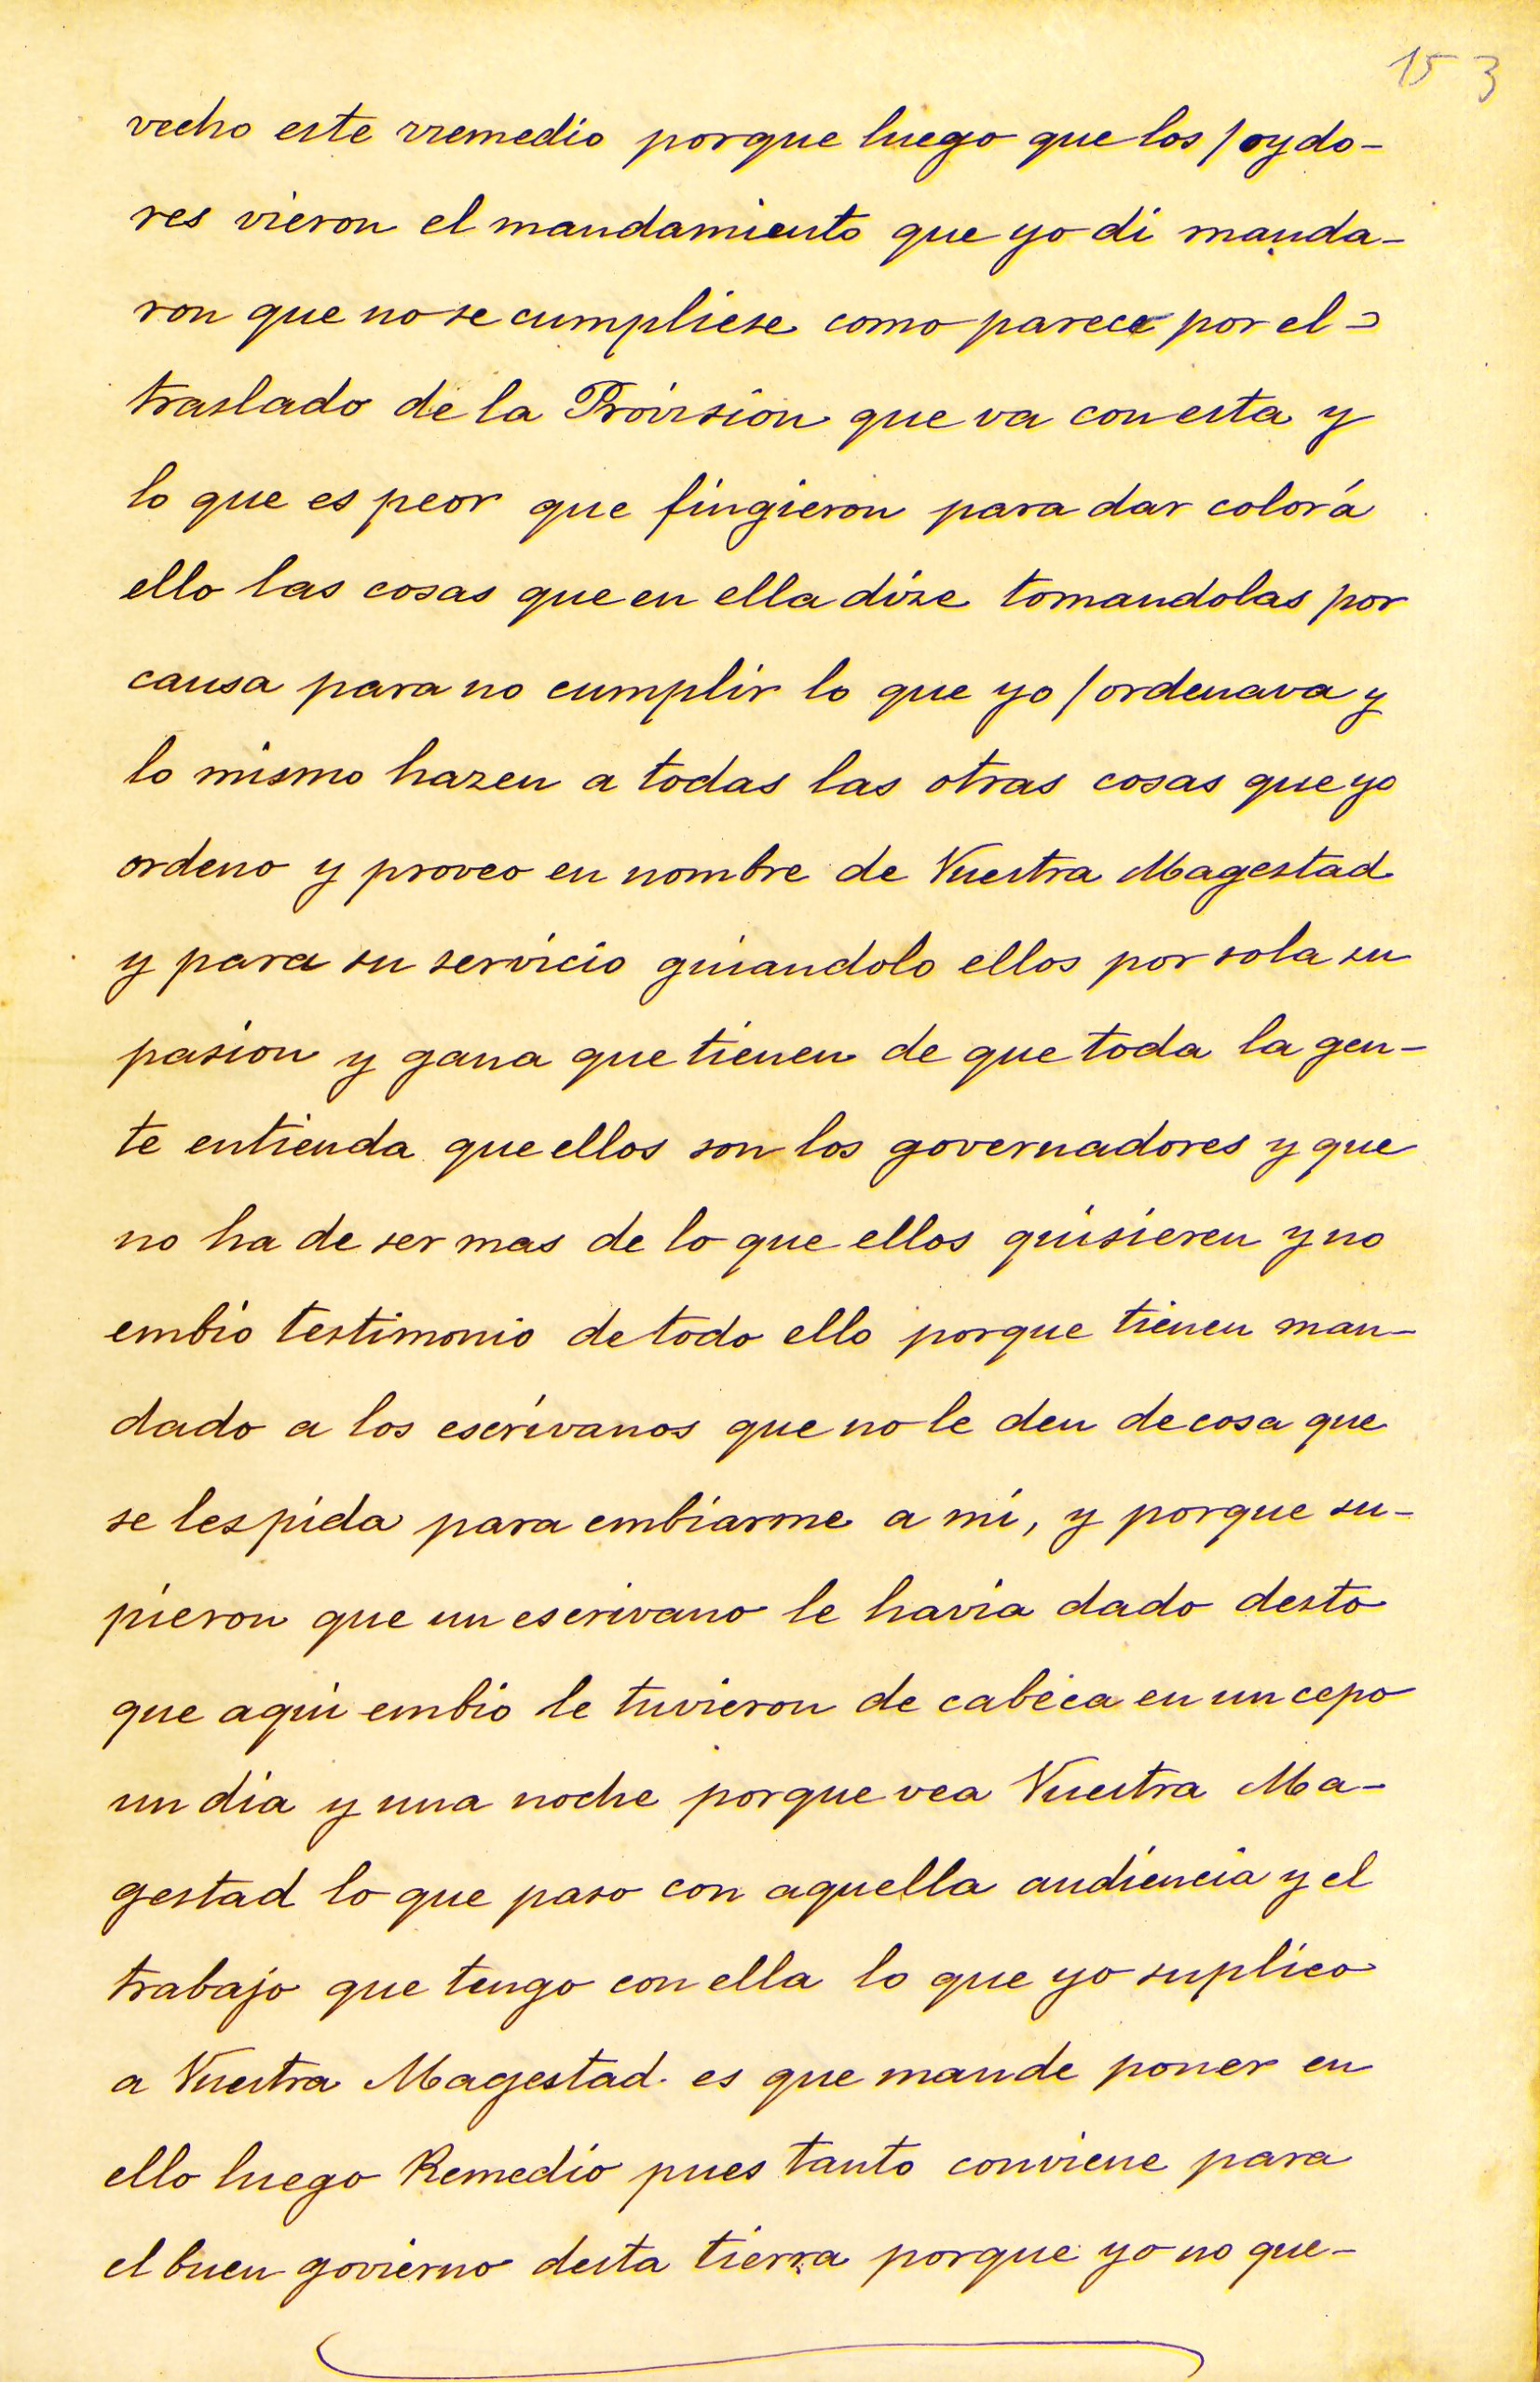 153
vecho este rremedio porque luego que los /oydo-
res vieron el mandamiento que yo di manda-
ron que no se cumpliese como parece por el-
traslado de la Provision que va con esta y
lo que es peor que fingieron para dar color á
ello las cosas que en ella dize tomandolas por
causa para no cumplir lo que yo /ordenava y
lo mismo hazen a todas las otras cosas que yo
ordeno y proveo en nombre de Vuestra Magestad
y para su servicio guiandolo ellos por sola su
pasion y gana que tienen de que toda la gen-
te entienda que ellos son los governadores y que
no ha de ser mas de lo que ellos quisieren y no
embio testimonio de todo ello porque tienen man-
dado a los escrivanos que no le den de cosa que
se les pida para embiarme a mi, y porque su-
pieron que un escrivano le havia dado desto
que aqui embio le tuvieron de cabeca en un cepo
un dia y una noche porque vea Vuestra Ma-
gestad lo que paso con aquella audiencia y el
trabajo que tengo con ella lo que yo suplico
a Vuestra Magestad es que mande poner en
ello luego Remedio pues tanto conviene para
el buen govierno desta tierra porque yo no que-